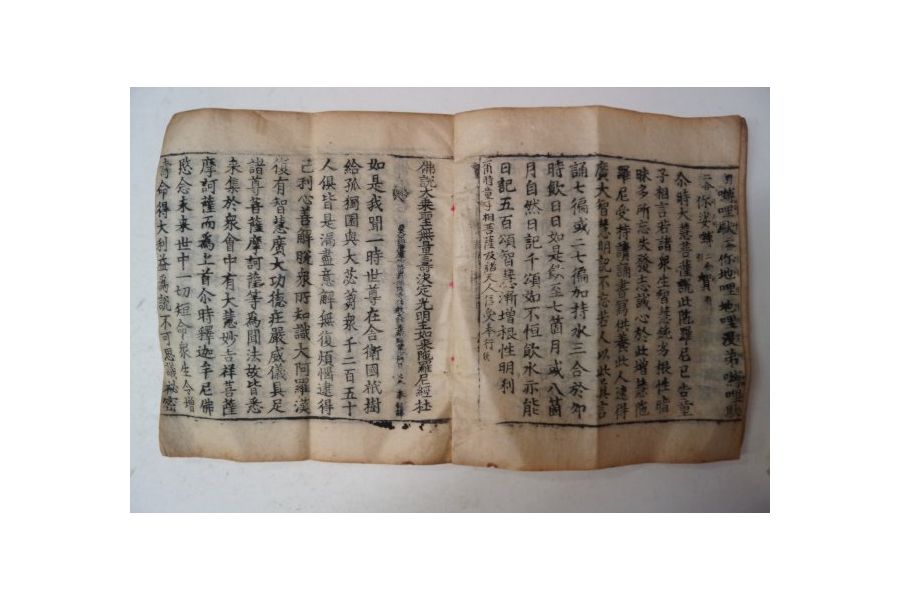 爾時大慧菩薩說此陀羅尼已告童
子相言若諸衆生智慧純劣根性暗
昧多所忘失發志誠心於此增慧陀
羅尼受持讀誦書寫供養此人速得
廣大智慧明記不忘若人以此真言
誦七徧或二七徧加持水三合於卯
時飲日日如是飲至七箇月或八箇
月自然日記千頌如不恒飲水亦能
日記五百頌智慧漸增根性明利
爾時童子相菩薩及諸天人信受奉行
佛說大乘聖無量壽決定光明王如來陁羅尼經
如是我聞一時世尊在舎衛國祇樹
給孤獨園與大苾蒭衆千二百五十
人俱皆是漏盡意解無復煩惱逮得
己利心善解脫衆所知識大阿羅漢
復有智慧廣大功德莊嚴威儀具足
諸尊菩薩摩訶薩等為聞法故皆悉
来集於衆會中有大慧妙吉祥菩薩
摩訶薩而為上首尒時釋迦牟尼佛
愍念未来世中一切短命衆生令增
壽命得大利益為說不可思議秘密